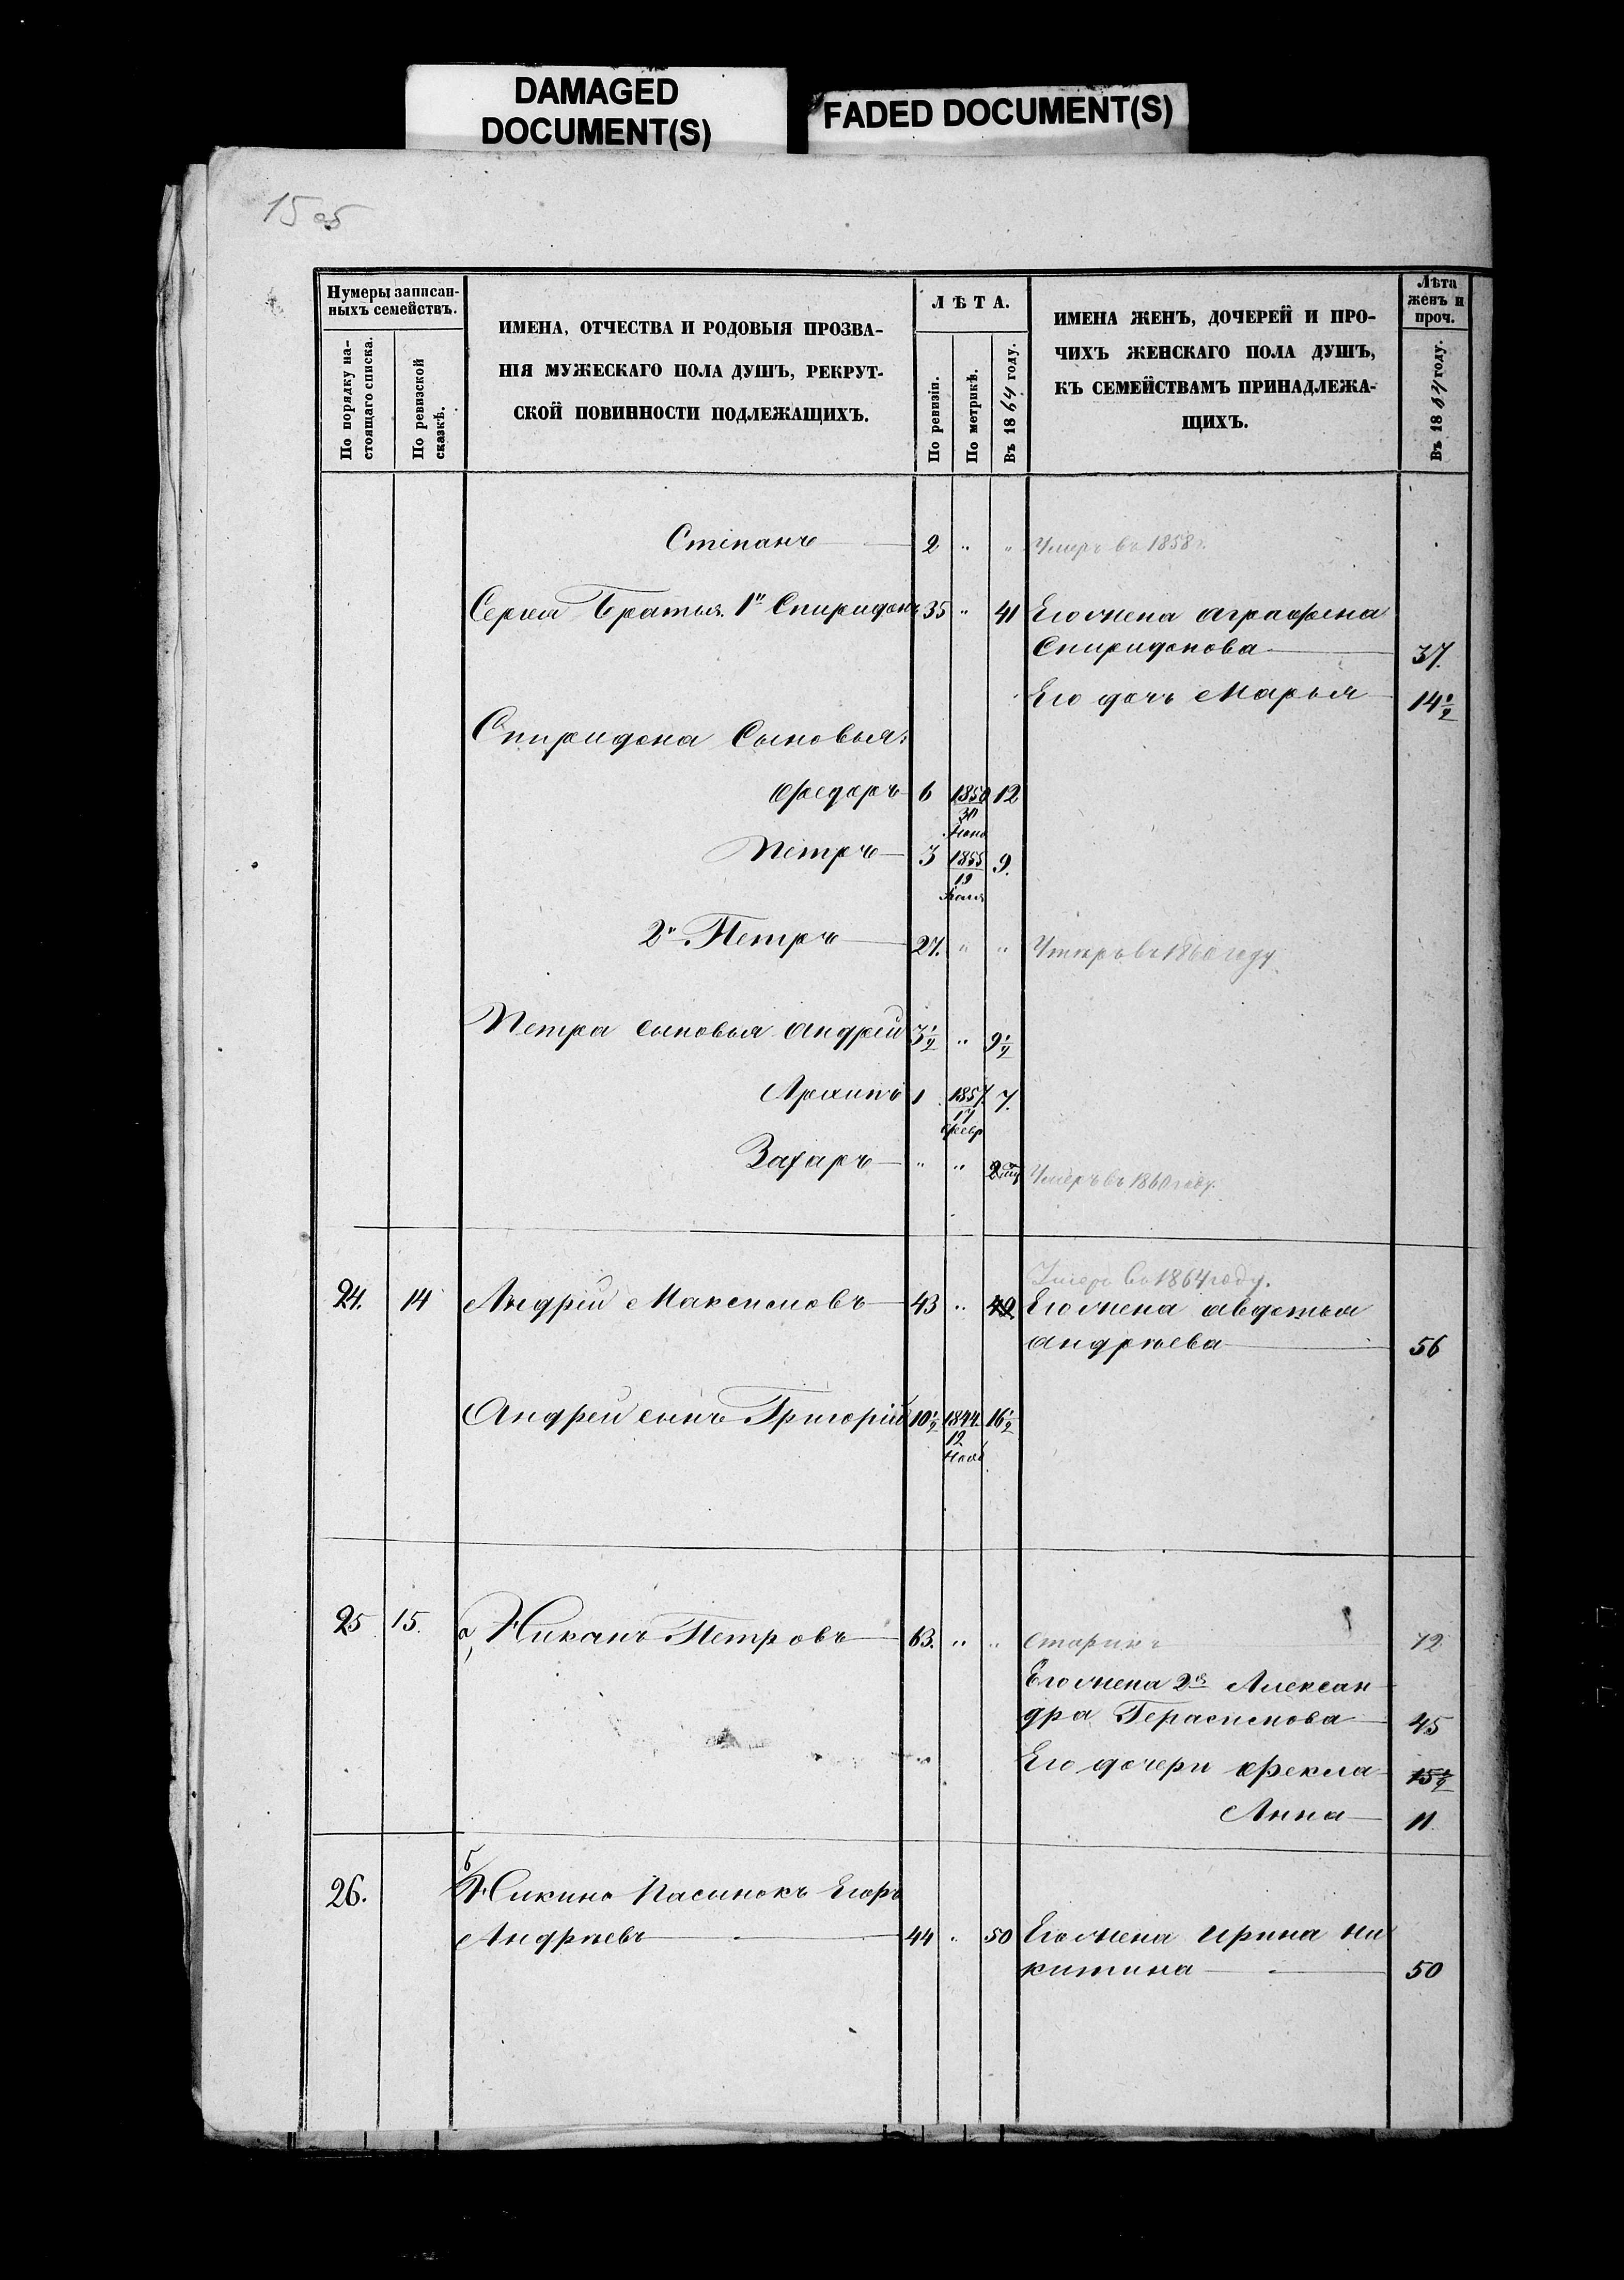 DAMAGED
DOCUMENT(S)
FADED DOCUMENT(S)
15 об
Нумеры записан-
ныхъ семействъ.
По порядку на-
стоящаго списка.
По ревизской
сказкѣ.
ИМЕНА, ОТЧЕСТВА И РОДОВЫЯ ПРОЗВА-
НІЯ МУЖЕСКАГО ПОЛА ДУШЪ, РЕКРУТ-
СКОЙ ПОВИННОСТИ ПОДЛЕЖАЩИХЪ.
ЛѢТА.
По ревизіи.
По метрикѣ.
Въ 1864 году.
ИМЕНА ЖЕНЪ, ДОЧЕРЕЙ И ПРО-
ЧИХЪ ЖЕНСКАГО ПОЛА ДУШЪ,
КЪ СЕМЕЙСТВАМЪ ПРИНАДЛЕЖА-
ЩИХЪ.
Лѣта
женъ и
проч.
Въ 18 году.
Степанъ 2 " " Умеръ въ 1858 г.
Сергея Братья. 1й Спиридонъ 35 " 41 Его жена Аграфена
Спиридонова 37.
Его дочь Марья 14 1/2
Спиридона Сыновья:
Федоръ 6 1850 12
30
Петръ 3 1855 9.
19
2й Петръ 27. " " Умеръ въ 1860 году
Петра сыновья Андрей 3 1/2 " 9 1/2
Архипъ 1 1857. 7.
17
Февр
Захаръ " " Умеръ въ 1860 году.
Умеръ въ 1864 году.
24. 14 Андрей Максимовъ 43 " 49 Его жена Авдотья
Андрѣева 56
Андрей сынъ Григорій 10 1/2 1844. 16 1/2
12
Нояб
25 15. а, Никанъ Петровъ 63. " " Старикъ 72
Его жена 2я Алексан
дра Герасимова 45
Его дочери Фекла 15 1/2
Анна 11
26. б/ Никино Пасынокъ Егоръ
Андрѣевъ 44 " 50 Его жена Ирина Ни
китина 50